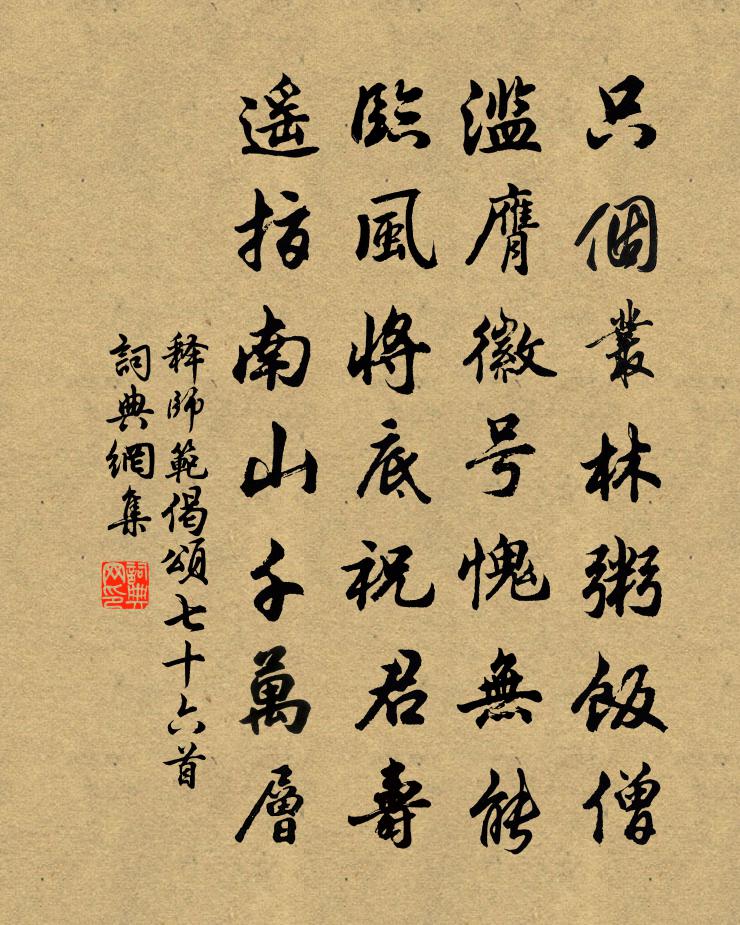 只個叢林粥飯僧
濫膺徽号愧無能
臨風將底祝君壽
遥指南山千萬層
释師範偈頌七十六首
詞典網集
詞典
网印